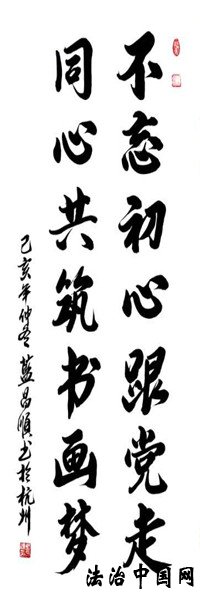 不忘初心跟党走
同心共筑书画梦
己亥年仲冬 蓝昌顺书于杭州
法治中国网